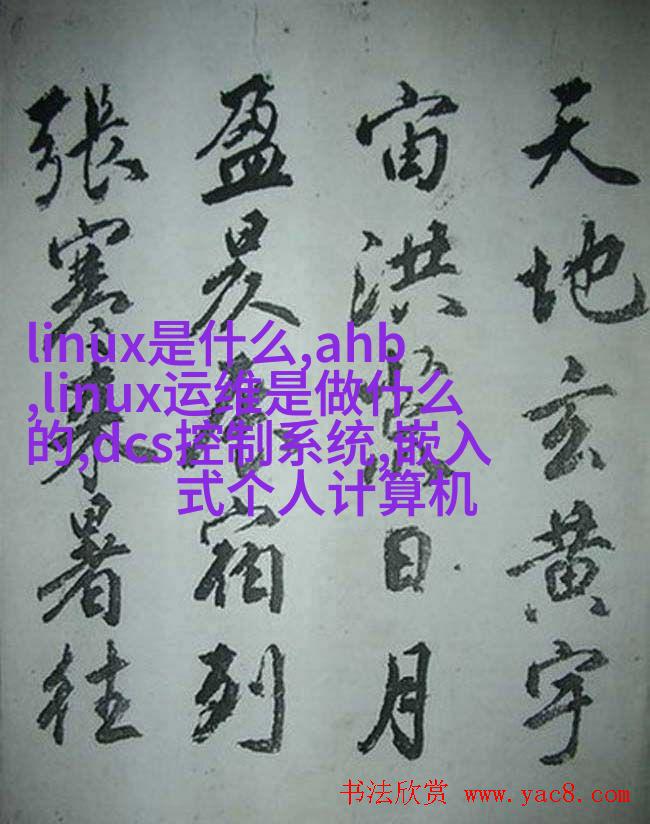 天地玄黄宇
宙洪日月
盈昃宿列
張寒来暑往
linux是什么,ahb
,linux运维是做什么
的,dcs控制系统,嵌入
式个人计算机
书法欣赏 www.yac8.com